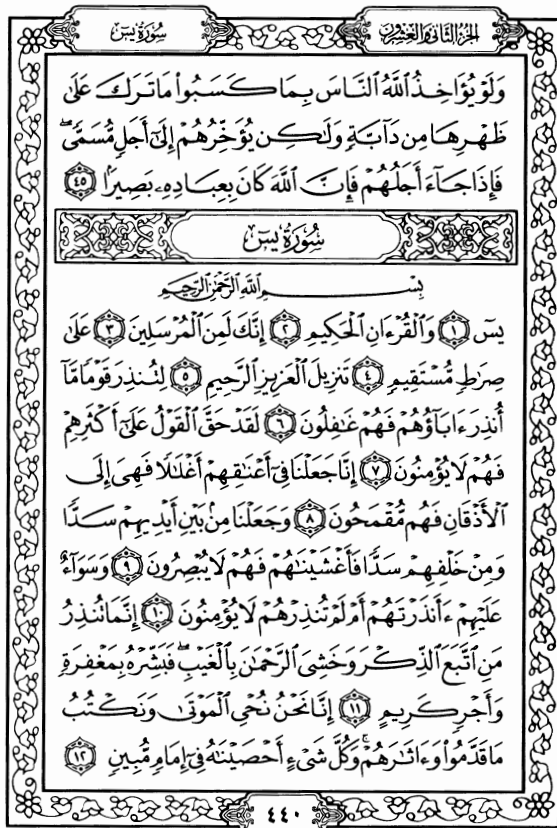 الجزء الثاني والعشرون
سورة يس
وَلَوْ يُؤَاخِذُ ٱللَّهُ ٱلنَّاسَ بِمَا كَسَبُوا۟ مَا تَرَكَ عَلَىٰ
ظَهْرِهَا مِن دَآبَّةٍ وَلَـٰكِن يُؤَخِّرُهُمْ إِلَىٰٓ أَجَلٍ مُّسَمًّى ۖ
فَإِذَا جَآءَ أَجَلُهُمْ فَإِنَّ ٱللَّهَ كَانَ بِعِبَادِهِۦ بَصِيرًۢا ٤٥
سُورَةُ يسٓ
بِسْمِ ٱللَّهِ ٱلرَّحْمَـٰنِ ٱلرَّحِيمِ
يسٓ ١ وَٱلْقُرْءَانِ ٱلْحَكِيمِ ٢ إِنَّكَ لَمِنَ ٱلْمُرْسَلِينَ ٣ عَلَىٰ
صِرَٰطٍ مُّسْتَقِيمٍ ٤ تَنزِيلَ ٱلْعَزِيزِ ٱلرَّحِيمِ ٥ لِتُنذِرَ قَوْمًا مَّآ
أُنذِرَ ءَابَآؤُهُمْ فَهُمْ غَـٰفِلُونَ ٦ لَقَدْ حَقَّ ٱلْقَوْلُ عَلَىٰٓ أَكْثَرِهِمْ
فَهُمْ لَا يُؤْمِنُونَ ٧ إِنَّا جَعَلْنَا فِىٓ أَعْنَـٰقِهِمْ أَغْلَـٰلًا فَهِىَ إِلَى
ٱلْأَذْقَانِ فَهُم مُّقْمَحُونَ ٨ وَجَعَلْنَا مِنۢ بَيْنِ أَيْدِيهِمْ سَدًّا
وَمِنْ خَلْفِهِمْ سَدًّا فَأَغْشَيْنَـٰهُمْ فَهُمْ لَا يُبْصِرُونَ ٩ وَسَوَآءٌ
عَلَيْهِمْ ءَأَنذَرْتَهُمْ أَمْ لَمْ تُنذِرْهُمْ لَا يُؤْمِنُونَ ١٠ إِنَّمَا تُنذِرُ
مَنِ ٱتَّبَعَ ٱلذِّكْرَ وَخَشِىَ ٱلرَّحْمَـٰنَ بِٱلْغَيْبِ ۖ فَبَشِّرْهُ بِمَغْفِرَةٍ
وَأَجْرٍ كَرِيمٍ ١١ إِنَّا نَحْنُ نُحْىِ ٱلْمَوْتَىٰ وَنَكْتُبُ
مَا قَدَّمُوا۟ وَءَاثَـٰرَهُمْ ۚ وَكُلَّ شَىْءٍ أَحْصَيْنَـٰهُ فِىٓ إِمَامٍ مُّبِينٍ ١٢
٤٤٠